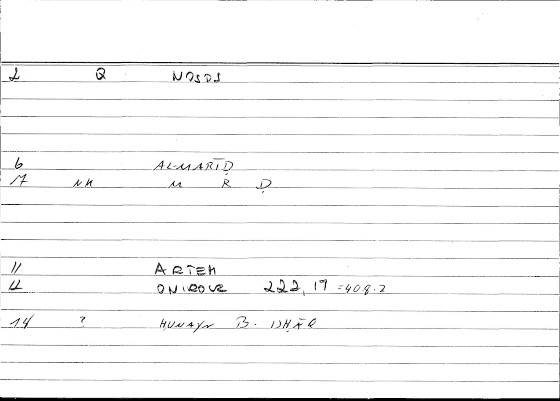 2 Q NOSOS
6 ALMARĪḌ
17 NH M R Ḍ
11 ARTEM
12 ONIROCR 222, 19 = 408.2
14 ? HUNAYN B. ISḤĀQ